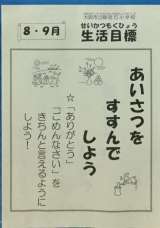 8・9月
せいかつもくひょう
生活目標
あいさつを
すすんで
しよう
☆「ありがとう」
「ごめんなさい」を
きちんと言えるように
しよう！